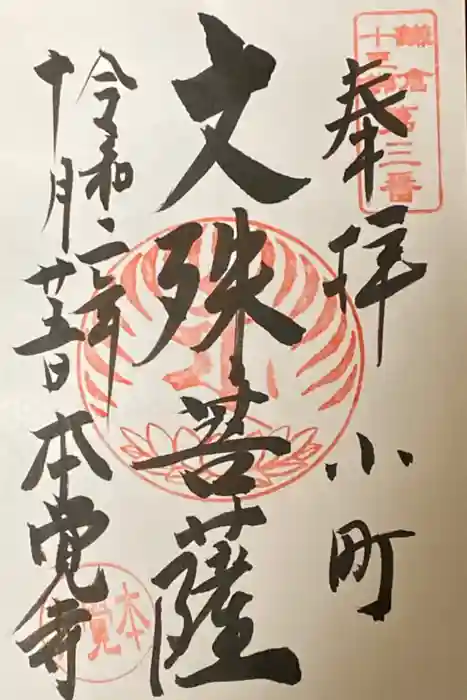 鎌倉第三番
十三佛
奉拝 小町
文殊菩薩
令和二年
十月廿五日 本覚寺
本覚